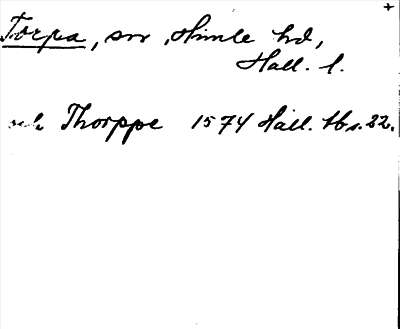 Torpa, sn, Himle hd,
Hall. l.
Thorppe 1574 Hall. tbr. 22.